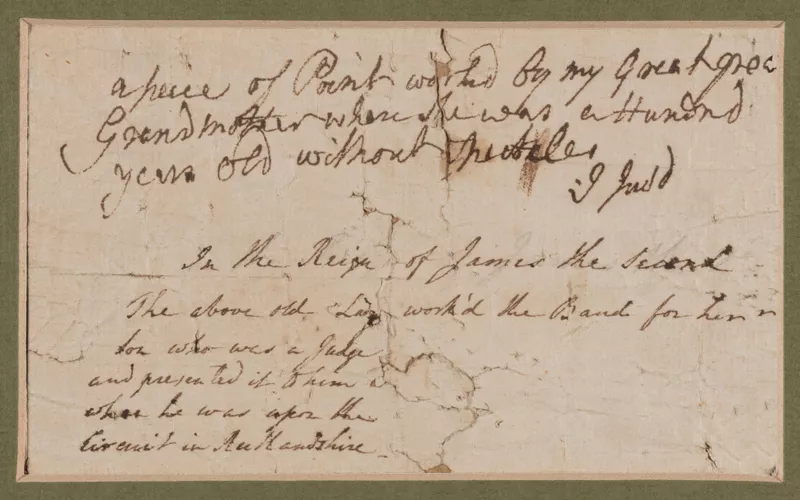 a peice of Point work'd by my Great grea
Grandmother when she was a Hundrd
years old without Spectcles
J Judd
In the Reign of James the Second
The above old Lady work'd the Band for her
son who was a Judge
and presented it to him
when he was upon the
Circuit in Rutlandshire